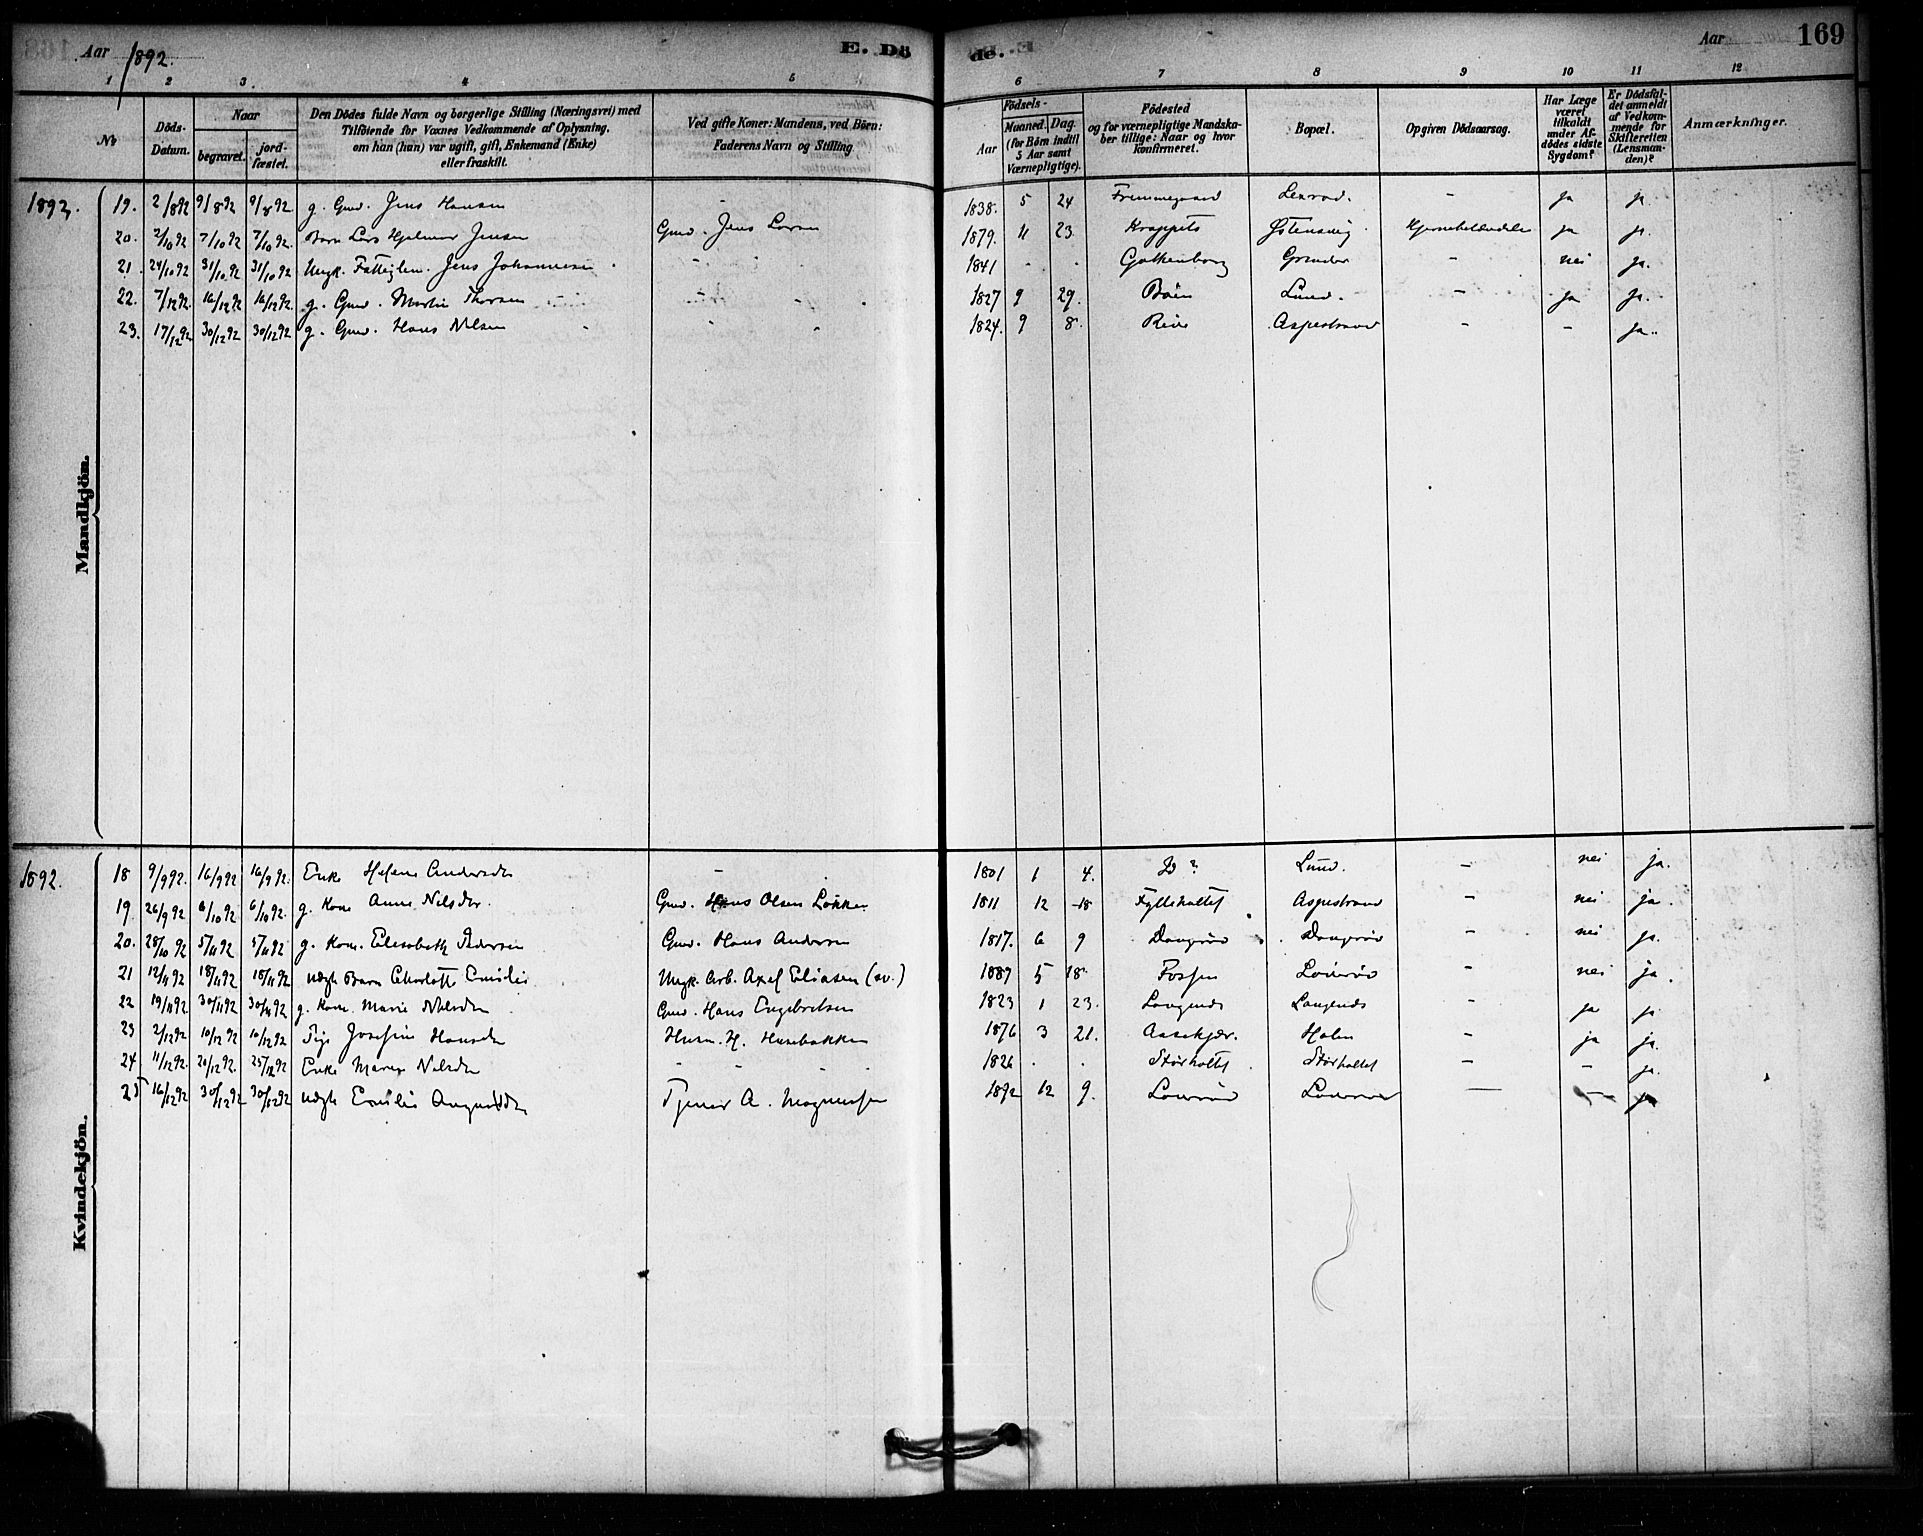 Aar 1892. E. Dö de. Aar 169
1 2 3. 4 5 6 7 8 9 10 11 12
No Döds-Datum. Naar begravet. jord-fæstet. Den Dödes fulde Navn og borgerlige Stilling (Næringsvei) med Tilföiende for Voxnes Vedkommende af Oplysning, om han (hun) var ugift, gift, Enkemand (Enke) eller fraskilt. Ved gifte Koner: Mandens, ved Börn: Faderens Navn og Stilling Födsels- Aar Maaned. Dag (for Börn indtil 5 Aar samt Værnepligtige). Födested og for værnepligtige Mandskaber tillige: Naar og hvor konfirmeret. Bopæl. Opgiven Dödsaarsag. Har Læge været tilkaldt under Afdödes sidste Sygdom? Er Dödsfaldet anmeldt af Vedkommende for Skifteretten (Lensmanden)? Anmærkninger.
Mandkjön.
1892. 19. 2/8 92 9/8 92 9/8 92 g. Gmd. Jens Hansen - 1838. 5 24 - ja ja
20. 2/10 92 7/10 92 7/10 92. Barn Lars Hjelmer Jensen Gmd. Jens Larsen 1879. 11 23 Krappets Østensvig ja ja.
21. 24/10 92 31/10 92 31/10 92 Ungk. Jens Johannesen - 1841 - - Gothenborg - nei ja.
22. 7/12 92. 16/12 92 16/12 92. g. Gmd. Martin Thorsen - 1827 9 29. Böen Lund. - ja ja.
23. 17/12 92 30/12 92 30/12 92 g. Gmd. Hans Nilsen 1824. 9 8. Aspestrand - - ja.
Kvindekjön.
1892. 18 9/9 92. 16/9 92 16/9 92. Enke Helene Andersdtr - 1801 1 4. ? Lund. - nei ja.
19. 26/9 92 6/10 92 6/10 92. g. Kone Anne Nilsdtr. Gmd. Hans Olsen Løkken 1811 12 18 Fylleholtet Aspestrand - nei ja.
20. 28/10 92 5/11 92 5/11 92 g. Kone. Elisabeth Gmd. Hans Andersen 1817. 6 9 - nei ja.
21 12/11 92 18/11 92 18/11 92 uægte Barn Charlotte Emilie Ungk. Arb. Axel Eliasen (sv.) 1889 5 18. Fossen - nei ja.
22 19/11 92 30/11 92 30/11 92 g. Kone. Marie Nilsdtr Gmd. Hans Engebretsen 1823 1 23. Langends Langends - ja ja
23 2/12 92 10/12 92 10/12 92 Pige Josefine Hansdtr Husm. H. Husebakken 1876 3 21. Assekjær. Holm - ja ja.
24 11/12 92. 20/12 92. Enke Maren Nilsdtr - 1826 - - Størholtet Størholtet - - ja.
25 16/12 92 30/12 92 30/12 92 uægte Emilie Tjener A. Magnussen 1892 12 9. - - ja